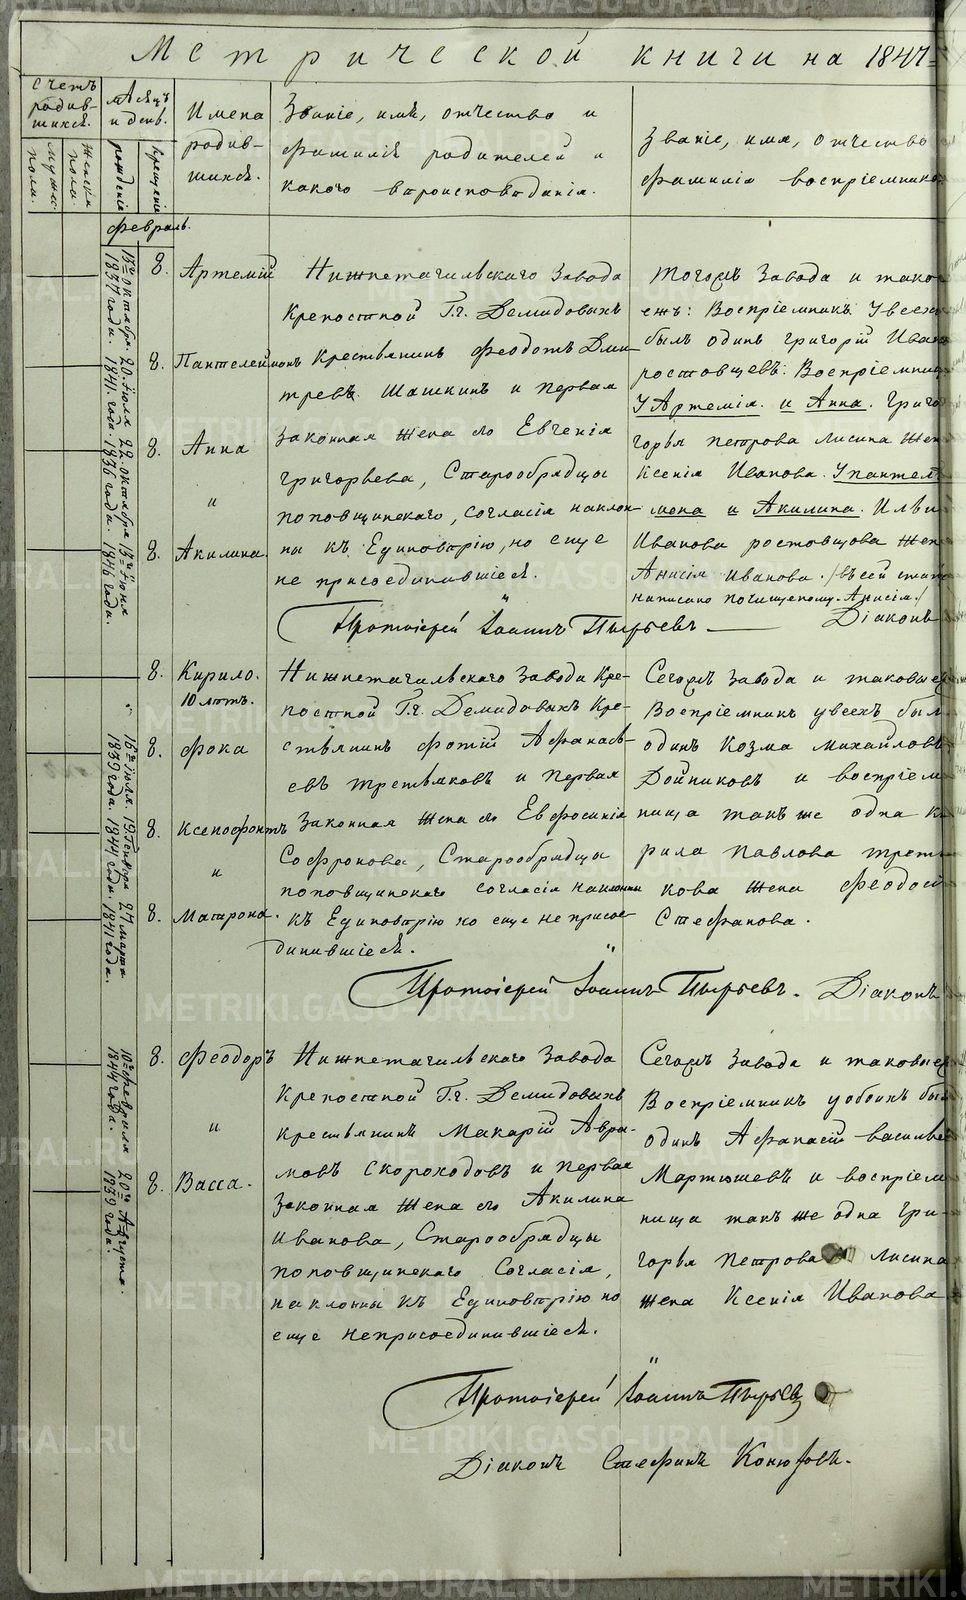 Метрической книги на 1847
Счетъ родив-шихся.
Мужск. пола.
Женска пола.
Мѣсяцъ и день.
рожденія
крещенія
Имена родив-шихся.
Званіе, имя, отчество и
фамилія родителей и
какого вѣроисповѣданія.
Званіе, имя, отчество
фамилія воспріемнико
Февраль.
8. Артемій
20. Іюля 1841. года.
8. Пантелеймонъ
22. октября 1836 года.
8. Анна
13го Іюня 1846 года.
8. Акилина.
Нижнетагильскаго Завода
Крепостной Г.г. Демидовыхъ
Крестьянинъ Феодотъ Дми-
тревъ Шашкинъ и первая
Законная жена его Евгенія
Григорьева, Старообрядцы
поповщинскаго, согласія наклон
ны къ Единовѣрію, но еще
не присоединившіеся.
Тогожъ Завода и тако-
ежъ: Воспріемникъ Увсехъ
былъ одинъ Григорій Ивано
ростовщевъ: Воспріемниц
У Артемія. и Анна. Григо
горья петрова лисина жен
Ксенія Иванова. У пантел
мона и Акилина. Ильи
Иванова ростовщова жен
Анисія Иванова. /въсей стат
написано почищеному. Анисія./
Протоіерей Іоаннъ Пырьевъ
Діаконъ
8. Кирило.
10 лѣтъ.
18го Іюля. 1839 года.
8. Фока
8. Ксенофонтъ
24 марта 1841 года.
8. Матрона.
Нижнетагильскаго Завода Кре-
постной Г.г. Демидовыхъ Кре-
стьянинъ Фотій Афанась-
евъ третьяковъ и первая
Законная жена его Евфросинія
Софронова, Старообрядцы
поповщинскаго согласія наклонны
къ Единовѣрію но еще не присое-
динившіеся.
Сегожъ Завода и таковые
Воспріемникъ увсехъ был
одинъ Козма михайловъ
Дойниковъ и воспріем
ница такъ же одна Ки
рила Павлова трет
кова жена Феодос
Стефанова.
Протоіерей Іоаннъ Пырьевъ.
Діаконъ
10го февраля 1844 года.
8. Феодоръ
20го Августа. 1839 года.
8. Васса.
Нижнетагильскаго Завода
Крепостной Г.г. Демидовыхъ
Крестьянинъ Макарій Авра-
мовъ Скороходовъ и первая
Законная жена его Акилина
Иванова, Старообрядцы
поповщинскаго Согласія,
наклонны къ Единовѣрію но
еще неприсоединившіеся.
Сегожъ Завода и таковые
Воспріемникъ уобоихъ бы
одинъ Афанасій васильев
Мартюшевъ и воспріем
ница такъ же одна Гри-
горья петрова Лисина
жена Ксенія Иванова
Протоіерей Іоаннъ Пырьевъ
Діаконъ Стефанъ Конюховъ.
METRIKI.GASO-URAL.RU